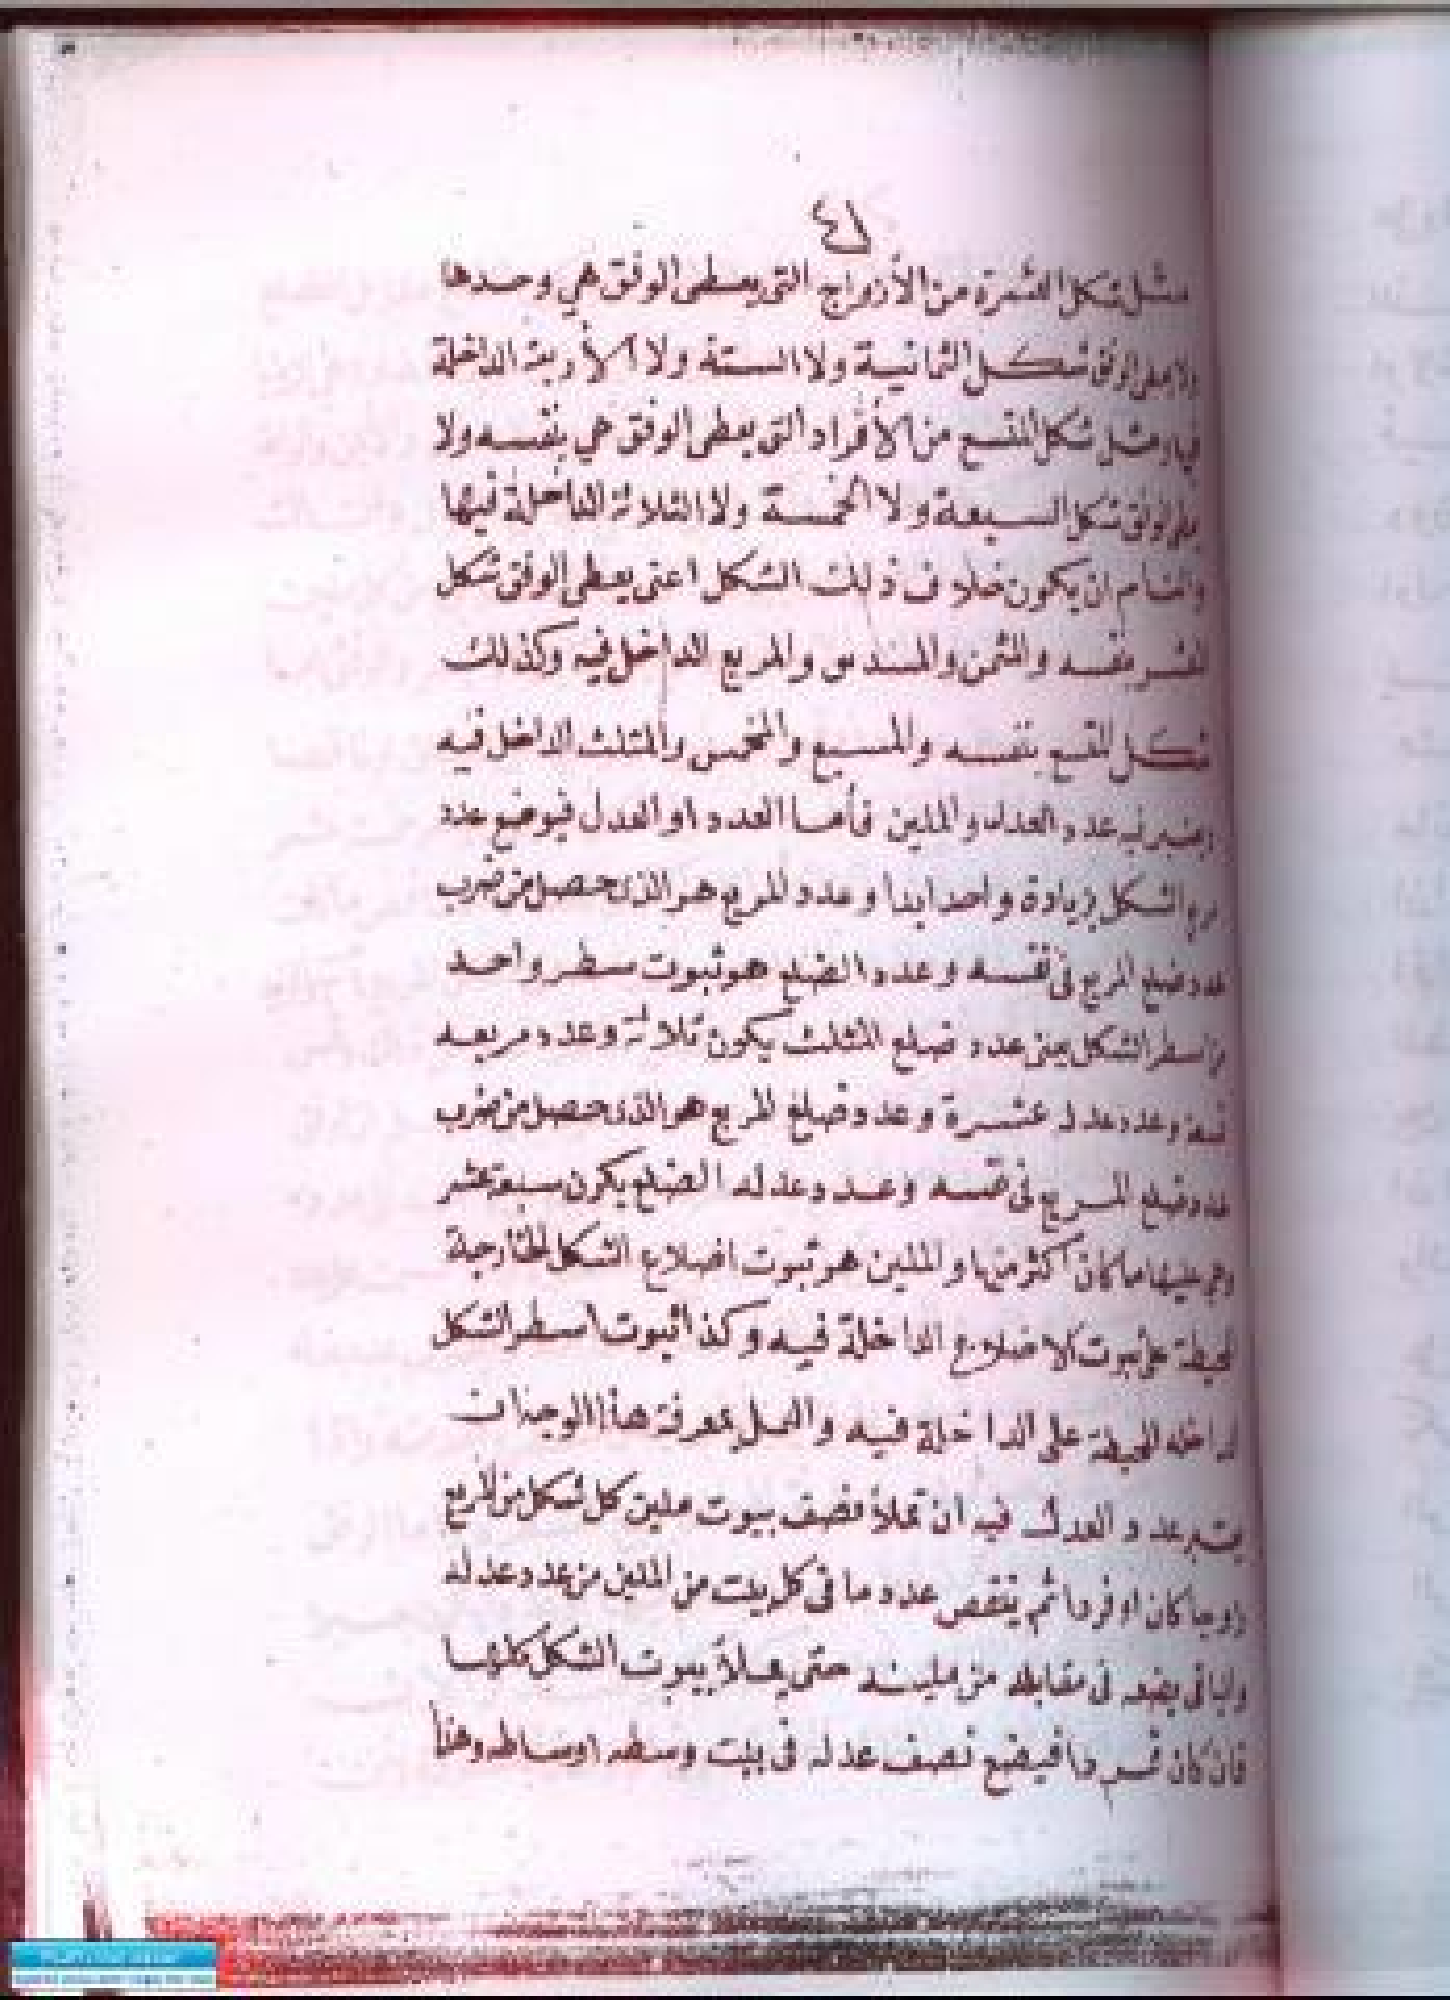 ٤١
مثل شكل العشرة من الأزواج التى يعطى الوفق هي وحدها
ولا يعطى الوفق شكل الثمانية ولا الستة ولا الأربعة الداخلة
فيها ومثل شكل المتسع من الأفراد التى يعطى الوفق هي بنفسه ولا
يعطى الوفق شكل السبعة ولا الخمسة ولا الثلاثة الداخلة فيها
والتام ان يكون خلاف ذلك الشكل اعنى يعطى الوفق شكل
العشر بنفسه والمثمن والمسدس والمربع الداخل فيه وكذلك
شكل المتسع بنفسه والمسبع والمخمس والمثلث الداخل فيه
عدد العدل والملبن فأما العدد او العدل فيوضع عدد
مربع الشكل بزيادة واحد ابدا وعدد المربع هو الذى حصل من ضرب
عدد ضلع المربع فى نفسه وعدد الضلع هو ثبوت سطر واحد
من اسطر الشكل يعنى عدد ضلع المثلث يكون ثلاثة وعدد مربعه
تسعة وعدد عدله عشرة وعدد ضلع المربع هو الذى حصل من ضرب
عدد ضلع المربع فى نفسه وعدد عدله الضلع يكون سبعة عشر
عليها ما كان اكثر منها والملبن هو ثبوت اضلاع الشكل الخارجة
المحيطة على ثبوت الاضلاع الداخلة فيه وكذا ثبوت اسطر الشكل
الداخلة المحيطة على الداخلة فيه والعمل بمعرفة هذا
عدد العدل فيه ان تملأ نصف بيوت ملبن كل شكل من المربع
زوجا كان او فردا ثم ينقص عدد ما فى كل بيت من الملبن من عدد عدله
والباقى يضعه فى مقابله من ملبنه حتى يملأ بيوت الشكل كلها
فان كان فردا فيضع نصف عدله فى بيت وسطه اوساطه وهذا